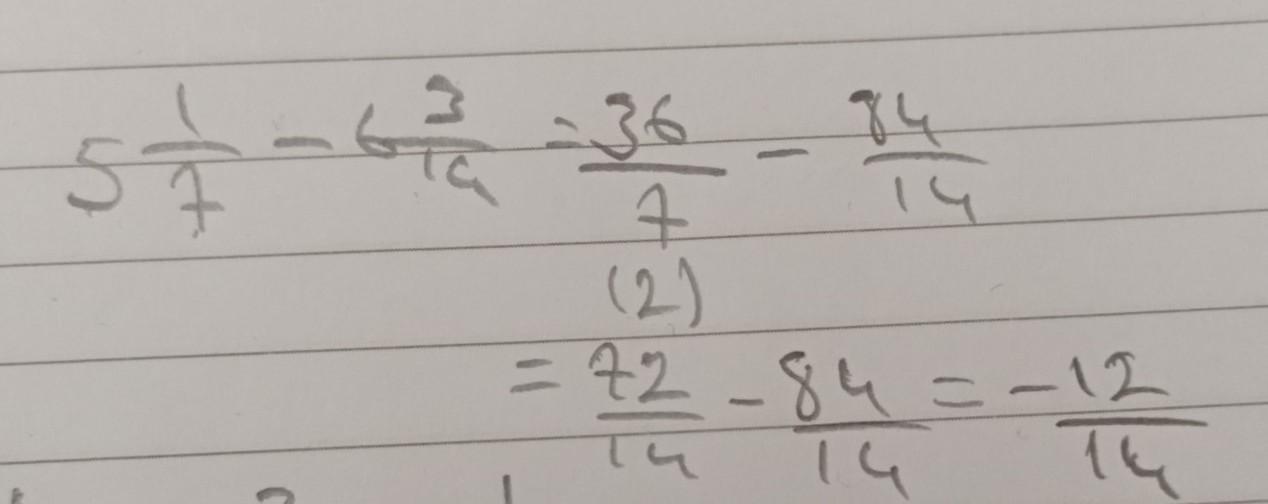 5 1/7 - 6 3/14 = 36/7 - 84/14
(2)
= 72/14 - 84/14 = -12/14